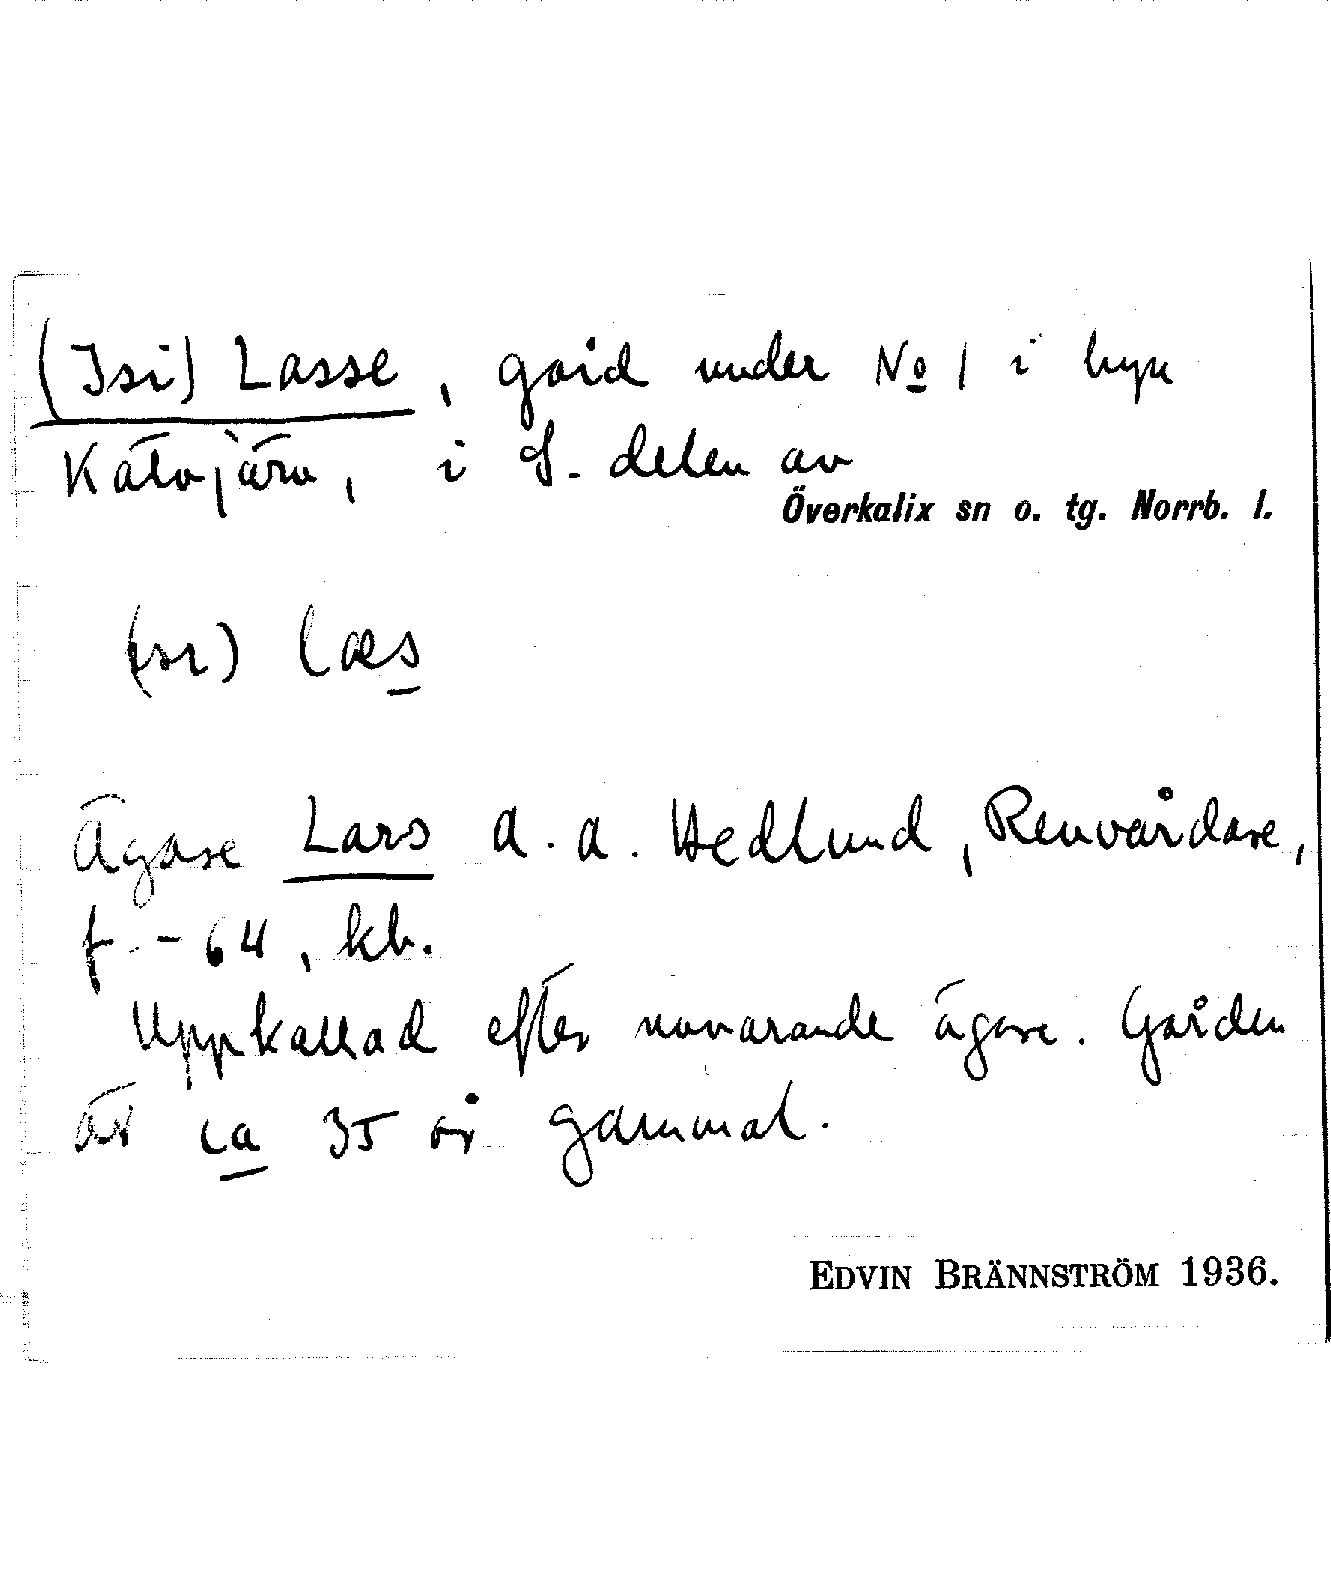 (Isi) Lasse, gård under No 1 i byn
Kätvjärv, i S. delen av
Överkalix sn o. tg. Norrb. l.
(ɪsɪ) læs
Ägare Lars A. A. Hedlund, Renvårdare,
f -64, kb.
Uppkallad efter nuvarande ägare. Gården
är ca 35 år gammal.
EDVIN BRÄNNSTRÖM 1936.